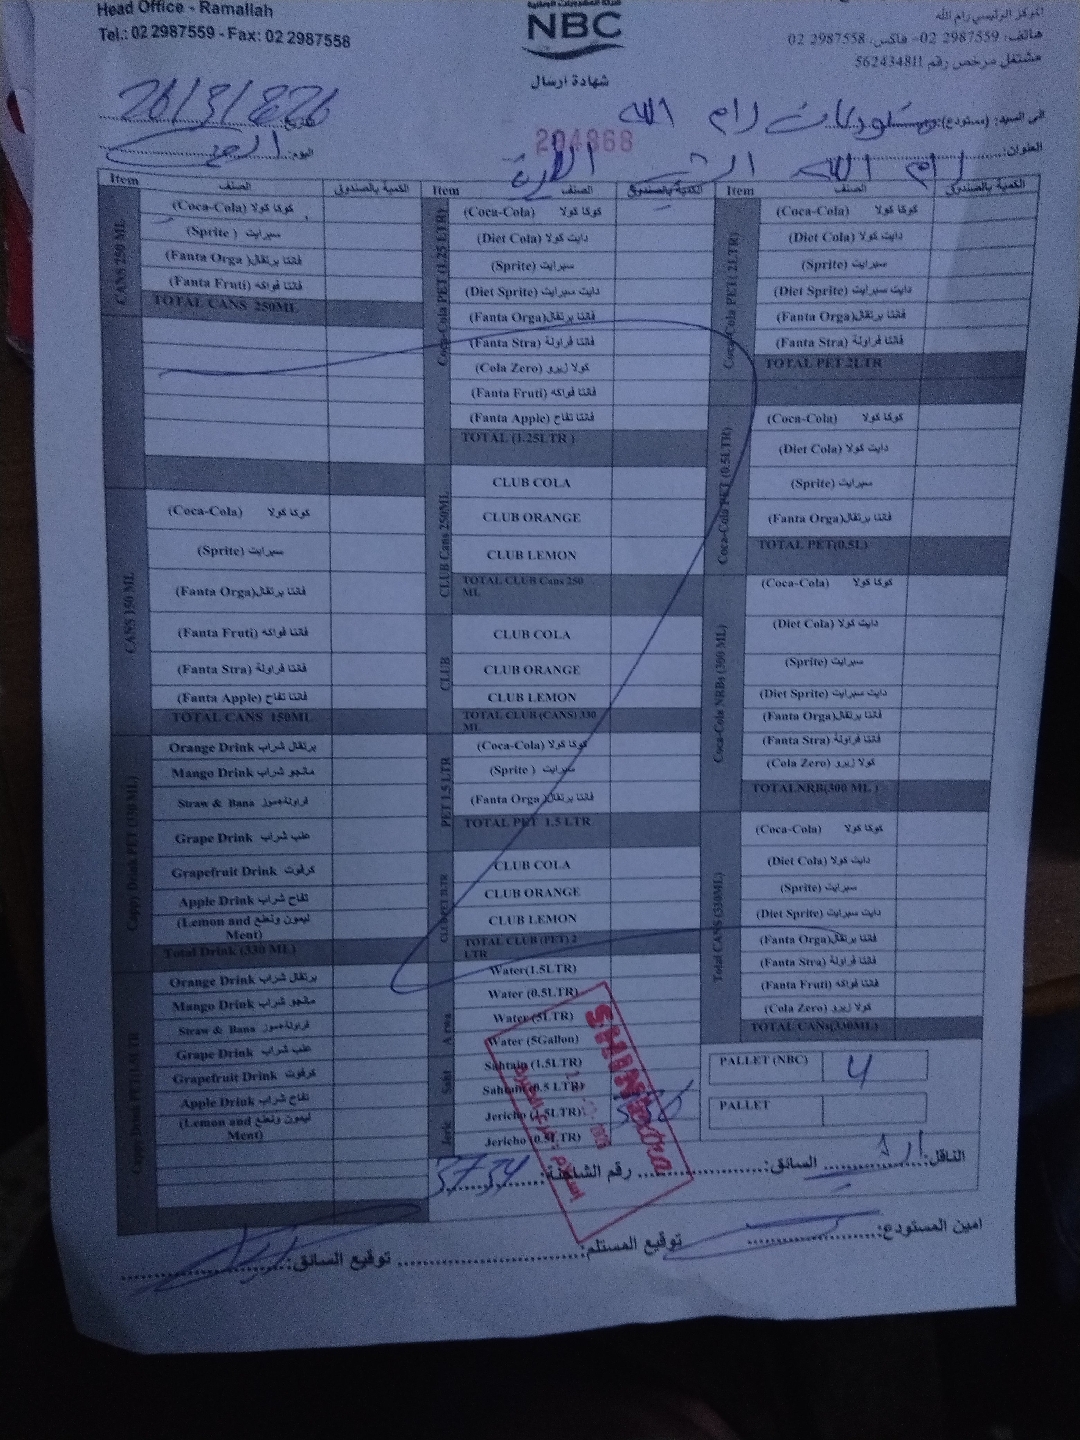 Head Office - Ramallah
Tel.: 02 2987559 - Fax: 02 2987558
NBC
شهادة ارسال
المركز الرئيسي رام الله
هاتف: 2987559 02- فاكس: 2987558 02
مشتغل مرخص رقم 562434811
204868
الى السيد: (مستودع): مستودعات رام الله
التاريخ
اليوم:
العنوان: رام الله
Item الصنف الكمية بالصندوق
CANS 250 ML
(Coca-Cola) كوكا كولا
(Sprite ) سبرايت
(Fanta Orga )فانتا برتقال
(Fanta Fruti) فانتا فواكه
TOTAL CANS 250ML
CANS 150 ML
(Coca-Cola) كوكا كولا
(Sprite) سبرايت
(Fanta Orga)فانتا برتقال
(Fanta Fruti) فانتا فواكه
(Fanta Stra) فانتا فراولة
(Fanta Apple) فانتا تفاح
TOTAL CANS 150ML
Cappy Drink PET (330 ML)
Orange Drink برتقال شراب
Mango Drink مانجو شراب
Straw & Bana فراولة+موز
Grape Drink عنب شراب
Grapefruit Drink كرفوت
Apple Drink تفاح شراب
(Lemon and ليمون ونعنع
Ment)
Total Drink (330 ML)
Orange Drink برتقال شراب
Mango Drink مانجو شراب
Straw & Bana فراولة+موز
Grape Drink عنب شراب
Grapefruit Drink كرفوت
Apple Drink تفاح شراب
(Lemon and ليمون ونعنع
Ment)
Item الصنف الكمية بالصندوق
Coca-Cola PET (1.25 LTR)
(Coca-Cola) كوكا كولا
(Diet Cola) دايت كولا
(Sprite) سبرايت
(Diet Sprite) دايت سبرايت
(Fanta Orga) فانتا برتقال
(Fanta Stra) فانتا فراولة
(Cola Zero) كولا زيرو
(Fanta Fruti) فانتا فواكه
(Fanta Apple) فانتا تفاح
TOTAL (1.25LTR )
CLUB Cans 250ML
CLUB COLA
CLUB ORANGE
CLUB LEMON
TOTAL CLUB Cans 250
ML
CLUB
CLUB COLA
CLUB ORANGE
CLUB LEMON
TOTAL CLUB (CANS) 330
ML
PET 1.5 LTR
(Coca-Cola) كوكا كولا
(Sprite ) سبرايت
(Fanta Orga )فانتا برتقال
TOTAL PET 1.5 LTR
CLUB PET 2LTR
CLUB COLA
CLUB ORANGE
CLUB LEMON
TOTAL CLUB (PET) 2
LTR
Water(1.5LTR)
Water (0.5LTR)
Water (5LTR)
Water (5Gallon)
Sahtain (1.5LTR)
Sahtain (0.5 LTR)
Jericho (1.5LTR)
Jericho (0.5LTR)
Item الصنف الكمية بالصندوق
Coca-Cola PET( 2LTR)
(Coca-Cola) كوكا كولا
(Diet Cola) دايت كولا
(Sprite) سبرايت
(Diet Sprite) دايت سبرايت
(Fanta Orga) فانتا برتقال
(Fanta Stra) فانتا فراولة
TOTAL PET 2LTR
Coca-Cola PET (0.5LTR)
(Coca-Cola) كوكا كولا
(Diet Cola) دايت كولا
(Sprite) سبرايت
(Fanta Orga)فانتا برتقال
TOTAL PET(0.5L)
Coca-Cola NRBs (300 ML)
(Coca-Cola) كوكا كولا
(Diet Cola) دايت كولا
(Sprite) سبرايت
(Diet Sprite) دايت سبرايت
(Fanta Orga) فانتا برتقال
(Fanta Stra) فانتا فراولة
(Cola Zero) كولا زيرو
TOTALNRB(300 ML )
Total CANS (330ML)
(Coca-Cola) كوكا كولا
(Diet Cola) دايت كولا
(Sprite) سبرايت
(Diet Sprite) دايت سبرايت
(Fanta Orga) فانتا برتقال
(Fanta Stra) فانتا فراولة
(Fanta Fruti) فانتا فواكه
(Cola Zero) كولا زيرو
TOTAL CANs(330ML)
PALLET (NBC) 4
PALLET
الناقل: السائق: رقم الشاحنة: 3734
امين المستودع: توقيع المستلم: توقيع السائق: